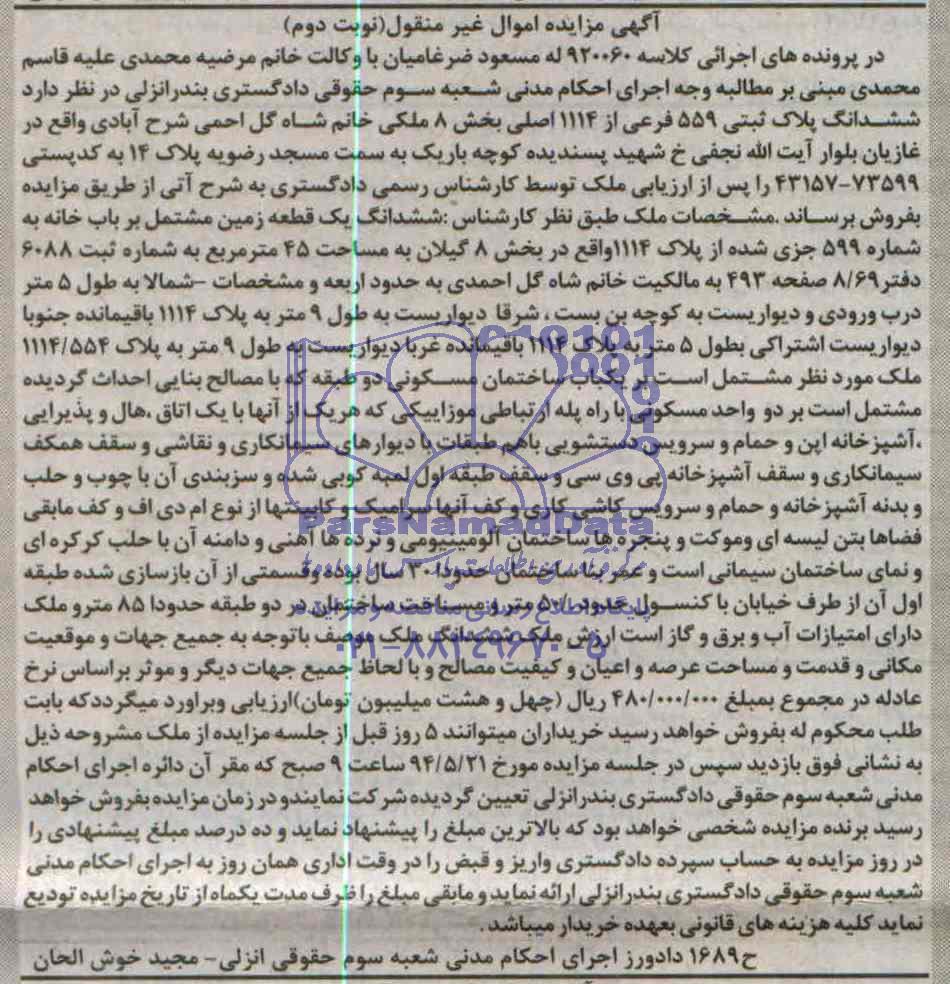 آگهی مزایده اموال غیر منقول(نوبت دوم)
در پرونده های اجرائی کلاسه ۹۲۰۰۶۰ له مسعود ضرغامیان با وکالت خانم مرضیه محمدی علیه قاسم
محمدی مبنی بر مطالبه وجه اجرای احکام مدنی شعبه سوم حقوقی دادگستری بندرانزلی در نظر دارد
ششدانگ پلاک ثبتی ۵۵۹ فرعی از ۱۱۱۴ اصلی بخش ۸ ملکی خانم شاه گل احمی شرح آبادی واقع در
غازیان بلوار آیت الله نجفی خ شهید پسندیده کوچه باریک به سمت مسجد رضویه پلاک ۱۴ به کدپستی
۷۳۵۹۹-۴۳۱۵۷ را پس از ارزیابی ملک توسط کارشناس رسمی دادگستری به شرح آتی از طریق مزایده
بفروش برساند .مشخصات ملک طبق نظر کارشناس :ششدانگ یک قطعه زمین مشتمل بر باب خانه به
شماره ۵۹۹ جزی شده از پلاک ۱۱۱۴واقع در بخش ۸ گیلان به مساحت ۴۵ مترمربع به شماره ثبت ۶۰۸۸
دفتر ۸/۶۹ صفحه ۴۹۳ به مالکیت خانم شاه گل احمدی به حدود اربعه و مشخصات -شمالا به طول ۵ متر
درب ورودی و دیواریست به کوچه بن بست ، شرقا دیواریست به طول ۹ متر به پلاک ۱۱۱۴ باقیمانده جنوبا
دیواریست اشتراکی بطول ۵ متر به پلاک ۱۱۱۴ باقیمانده غربا دیواریست به طول ۹ متر به پلاک ۱۱۱۴/۵۵۴
ملک مورد نظر مشتمل است بر یکباب ساختمان مسکونی دو طبقه که با مصالح بنایی احداث گردیده
مشتمل است بر دو واحد مسکونی با راه پله ارتباطی موزاییکی که هر یک از آنها با یک اتاق ،هال و پذیرایی
،آشپزخانه اپن و حمام و سرویس دستشویی باهم طبقات با دیوارهای سیمانکاری و نقاشی و سقف همکف
سیمانکاری و سقف آشپزخانه پی وی سی و سقف طبقه اول لمبه کوبی شده و سزبندی آن با چوب و حلب
و بدنه آشپزخانه و حمام و سرویس کاشی کاری و کف آنها سرامیک و کابینتها از نوع ام دی اف و کف مابقی
فضاها بتن لیسه ای وموکت و پنجره ها ساختمان آلومینیومی و نرده ها آهنی و دامنه آن با حلب کرکره ای
و نمای ساختمان سیمانی است و عمر بنا ساختمان حدودا ۳۰ سال بوده وقسمتی از آن بازسازی شده طبقه
اول آن از طرف خیابان با کنسول حدود ۵۰/ مترو مساحت ساختمان در دو طبقه حدودا ۸۵ مترو ملک
دارای امتیازات آب و برق و گاز است ارزش ملک ششدانگ ملک موصف باتوجه به جمیع جهات و موقعیت
مکانی و قدمت و مساحت عرصه و اعیان و کیفیت مصالح و با لحاظ جمیع جهات دیگر و موثر براساس نرخ
عادله در مجموع بمبلغ ۴۸۰/۰۰۰/۰۰۰ ریال (چهل و هشت میلیبون تومان)ارزیابی وبراورد میگرددکه بابت
طلب محکوم له بفروش خواهد رسید خریداران میتوانند ۵ روز قبل از جلسه مزایده از ملک مشروحه ذیل
به نشانی فوق بازدید سپس در جلسه مزایده مورخ ۹۴/۵/۲۱ ساعت ۹ صبح که مقر آن دائره اجرای احکام
مدنی شعبه سوم حقوقی دادگستری بندرانزلی تعیین گردیده شرکت نمایندو در زمان مزایده بفروش خواهد
رسید برنده مزایده شخصی خواهد بود که بالاترین مبلغ را پیشنهاد نماید و ده درصد مبلغ پیشنهادی را
در روز مزایده به حساب سپرده دادگستری واریز و قبض را در وقت اداری همان روز به اجرای احکام مدنی
شعبه سوم حقوقی دادگستری بندرانزلی ارائه نماید و مابقی مبلغ را ظرف مدت یکماه از تاریخ مزایده تودیع
نماید کلیه هزینه های قانونی بعهده خریدار میباشد .
ح۱۶۸۹ دادورز اجرای احکام مدنی شعبه سوم حقوقی انزلی- مجید خوش الحان
ParsNamadData
۰۲۱-۸۸۳۴۹۶۷۰-۵